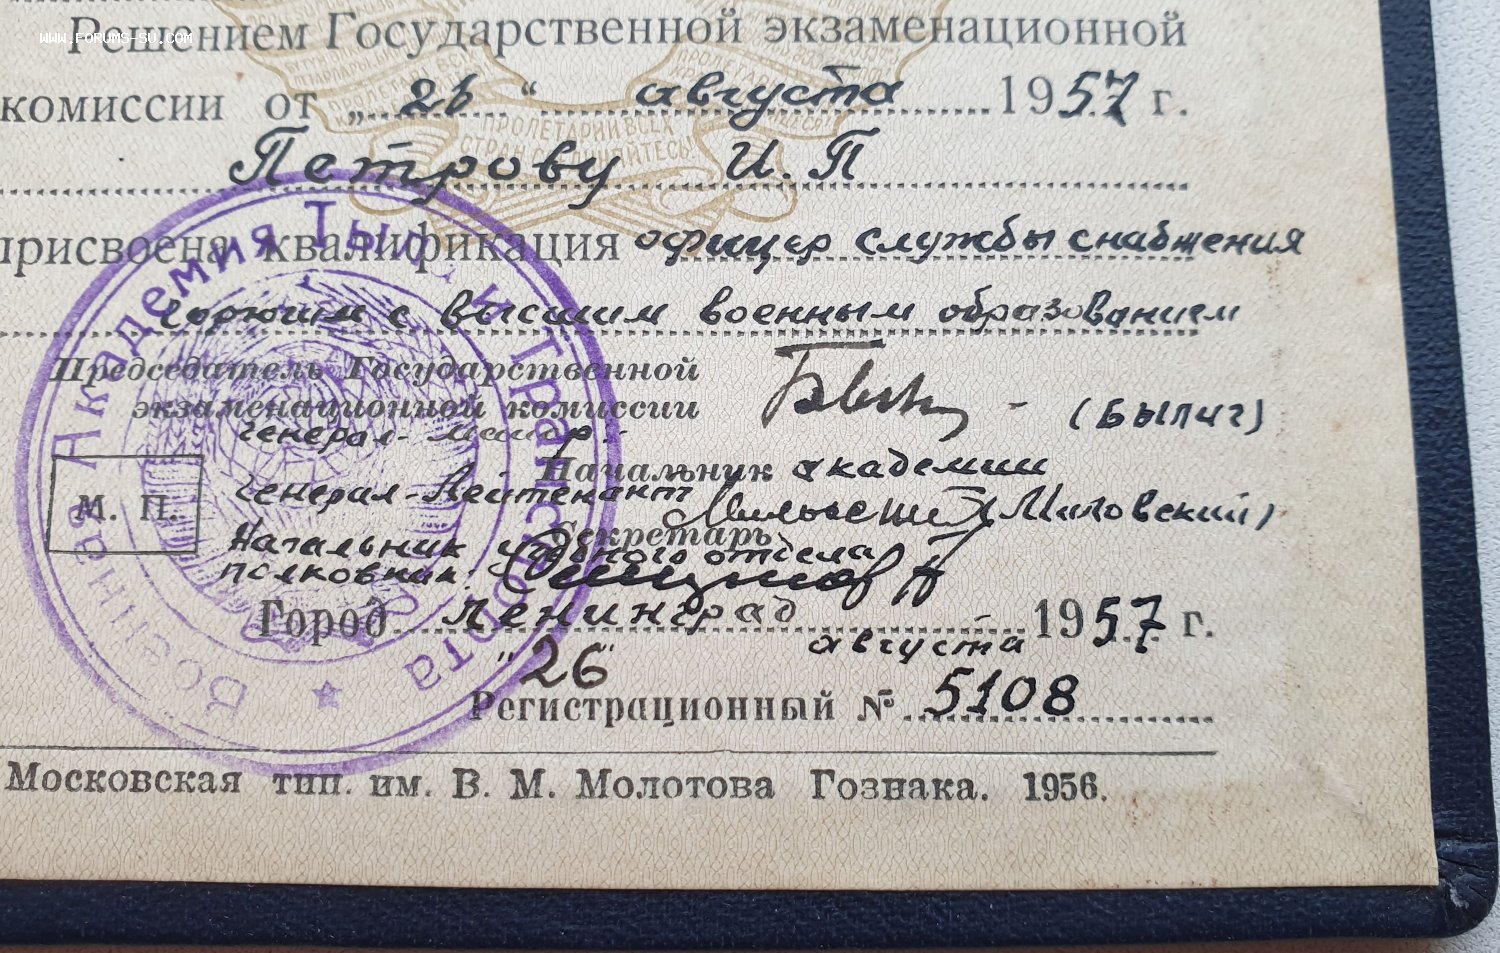 www.forums-su.com
Решением Государственной экзаменационной
комиссии от „ 26 “ августа 1957 г.
ПРОЛЕТАРИИ ВСЕХ
СТРАН СОЕДИНЯЙТЕСЬ!
Петрову И.П
присвоена квалификация офицер службы снабжения
горючим с высшим военным образованием
Председатель Государственной
экзаменационной комиссии
генерал-майор - (Былиг)
Начальник академии
генерал-лейтенант (Миловский)
Секретарь
М. П.
Начальник учебного отдела
полковник
Город Ленинград 1957 г.
"26" августа
Регистрационный № 5108
Военная Академия Тыла и Транспорта
Московская тип. им. В. М. Молотова Гознака. 1956.